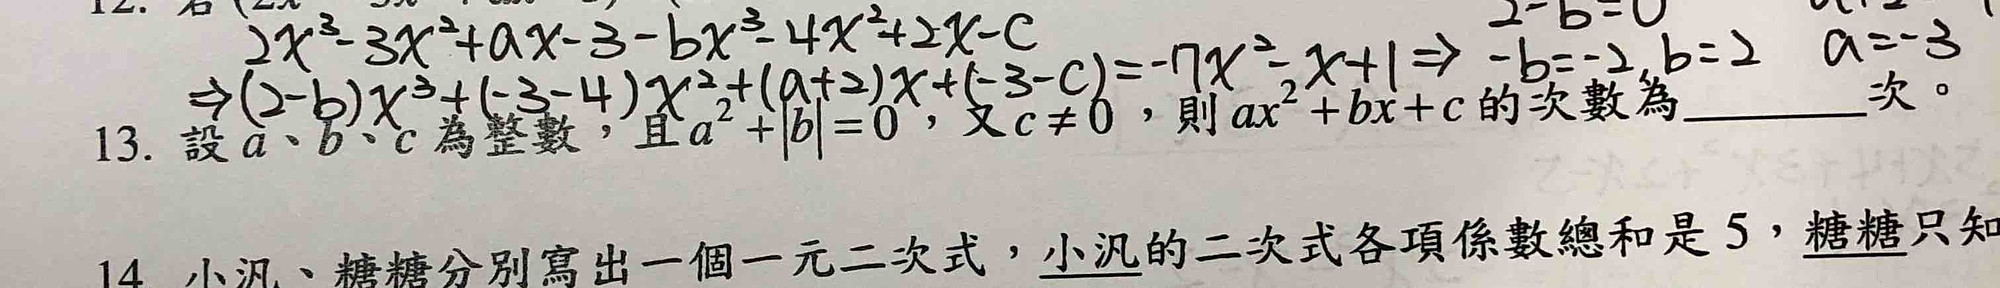 12. 若(2x
2x³-3x²+ax-3-bx³-4x²+2x-c
2-b=0
⇒(2-b)x³+(-3-4)x²+(a+2)x+(-3-c)=-7x²-x+1⇒ -b=-2, b=2 a=-3
13. 設 a、b、c 為整數，且 a²+|b|=0，又 c≠0，則 ax²+bx+c 的次數為______次。
14. 小汎、糖糖分別寫出一個一元二次式，小汎的二次式各項係數總和是 5，糖糖只知